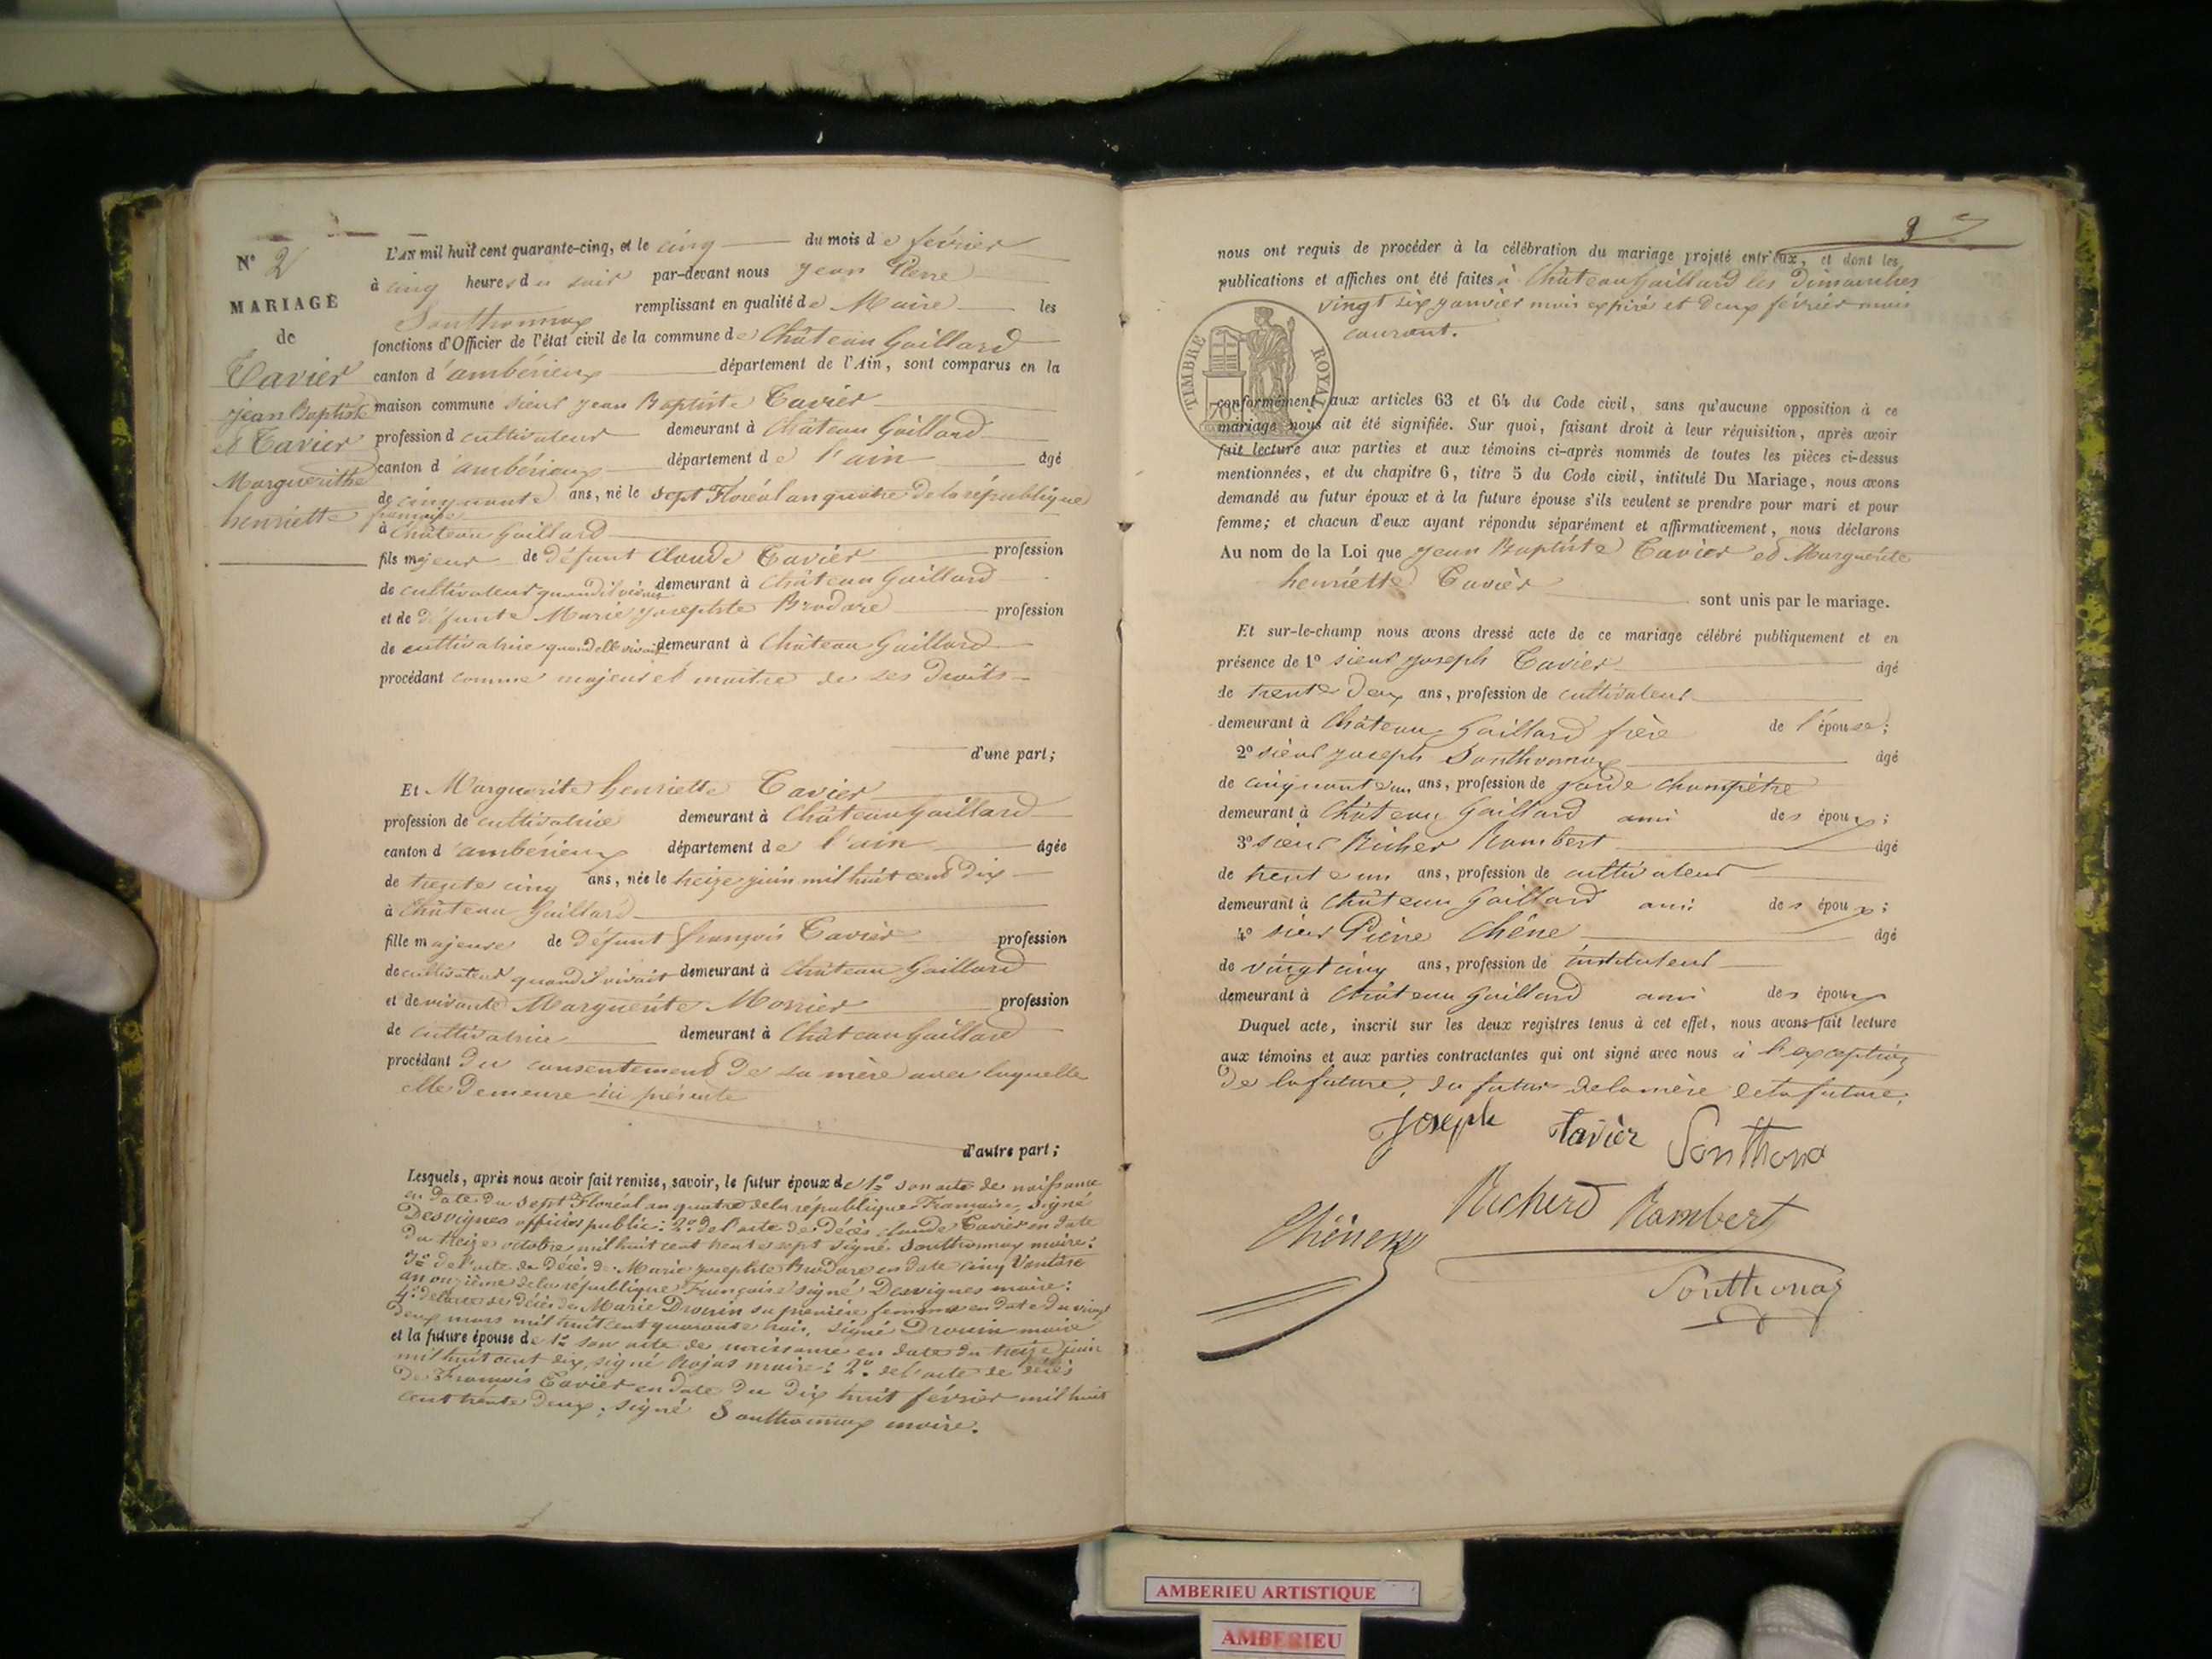 N° 2
MARIAGE
de
Tavier
jean Baptiste
et Tavier
Marguerithe
henriette
L'AN mil huit cent quarante-cinq, et le cinq du mois de février
à cinq heures du soir par-devant nous jean Pierre
Southonnax remplissant en qualité de Maire les
fonctions d'Officier de l'état civil de la commune de Château Gaillard
canton d'ambérieux département de l'Ain, sont comparus en la
maison commune sieur jean Baptiste Tavier
profession d cultivateur demeurant à Château Gaillard
canton d'ambérieux département de l'ain âgé
de cinquante ans, né le sept Floréal an quatre de la république
française
à Château Gaillard
fils majeur de défunt Claude Tavier profession
de cultivateur quand il vivait demeurant à Château Gaillard
et de défunte Marie josephte Brodare profession
de cultivatrice quand elle vivait demeurant à Château Gaillard
procédant comme majeur et maitre de ses droits
d'une part;
Et Marguerite henriette Tavier
profession de cultivatrice demeurant à Château Gaillard
canton d'ambérieux département de l'ain âgée
de trente cinq ans, née le treize juin mil huit cent dix
à Château Gaillard
fille majeure de défunt françois Tavier profession
de cultivateur quand il vivait demeurant à Château Gaillard
et de vivante Marguerite Monier profession
de cultivatrice demeurant à Château Gaillard
procédant du consentement de sa mère avec laquelle
elle demeure ici présente
d'autre part;
Lesquels, après nous avoir fait remise, savoir, le futur époux de 1° son acte de naissance
en date du sept Floréal an quatre de la république Française, signé
Desvignes officier public: 2° de l'acte de décès claude Tavier en date
du treize octobre mil huit cent trente sept signé Southonnax maire:
3° de l'acte de décès de Marie josephte Brodare en date cinq Vantose
an onzième de la république Française signé Desvignes maire:
4° de l'acte de décès de Marie Drouin sa première femme en date du vingt
deux mars mil huit cent quarante trois, signé Drouin maire
et la future épouse de 1° son acte de naissance en date du treize juin
mil huit cent dix, signé Rojas maire: 2° de l'acte de décès
de François Tavier en date du dix huit février mil huit
cent trente deux; signé Southonnax maire.
3
nous ont requis de procéder à la célébration du mariage projeté entr'eux, et dont les
publications et affiches ont été faites à Château Gaillard les Dimanches
vingt six janvier mois expiré et deux février mois
courant.
TIMBRE ROYAL
70
conformément aux articles 63 et 64 du Code civil, sans qu'aucune opposition à ce
mariage nous ait été signifiée. Sur quoi, faisant droit à leur réquisition, après avoir
fait lecture aux parties et aux témoins ci-après nommés de toutes les pièces ci-dessus
mentionnées, et du chapitre 6, titre 5 du Code civil, intitulé Du Mariage, nous avons
demandé au futur époux et à la future épouse s'ils veulent se prendre pour mari et pour
femme; et chacun d'eux ayant répondu séparément et affirmativement, nous déclarons
Au nom de la Loi que jean Baptiste Tavier et Marguerite
henriette Tavier sont unis par le mariage.
Et sur-le-champ nous avons dressé acte de ce mariage célébré publiquement et en
présence de 1° sieur joseph Tavier âgé
de trente deux ans, profession de cultivateur
demeurant à Château Gaillard frère de l'épouse;
2° sieur joseph Southonnax âgé
de cinquante un ans, profession de garde champêtre
demeurant à Château Gaillard ami des époux;
3° sieur Richer Rambert âgé
de trente un ans, profession de cultivateur
demeurant à Château Gaillard ami des époux;
4° sieur Pierre Chêne âgé
de vingt cinq ans, profession de instituteur
demeurant à Château Gaillard ami des époux
Duquel acte, inscrit sur les deux registres tenus à cet effet, nous avons fait lecture
aux témoins et aux parties contractantes qui ont signé avec nous à l'exception
de la future, du futur de la mère de la future.
Joseph Tavier Sonthona
Richerd Rambert
Southonax
AMBERIEU ARTISTIQUE
AMBERIEU